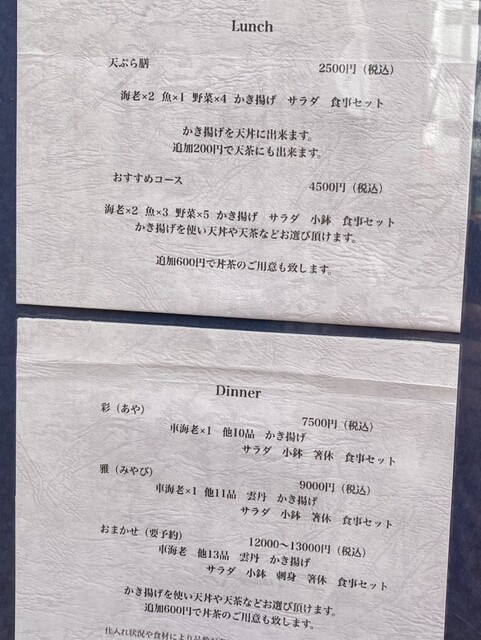 Lunch
天ぷら膳 2500円（税込）
海老×2 魚×1 野菜×4 かき揚げ サラダ 食事セット
かき揚げを天丼に出来ます。
追加200円で天茶にも出来ます。
おすすめコース 4500円（税込）
海老×2 魚×3 野菜×5 かき揚げ サラダ 小鉢 食事セット
かき揚げを使い天丼や天茶などお選び頂けます。
追加600円で丼茶のご用意も致します。
Dinner
彩（あや） 7500円（税込）
車海老×1 他10品 かき揚げ
サラダ 小鉢 箸休 食事セット
雅（みやび） 9000円（税込）
車海老×1 他11品 雲丹 かき揚げ
サラダ 小鉢 箸休 食事セット
おまかせ（要予約） 12000〜13000円（税込）
車海老 他13品 雲丹 かき揚げ
サラダ 小鉢 刺身 箸休 食事セット
かき揚げを使い天丼や天茶などお選び頂けます。
追加600円で丼茶のご用意も致します。
仕入れ状況や食材により品数が